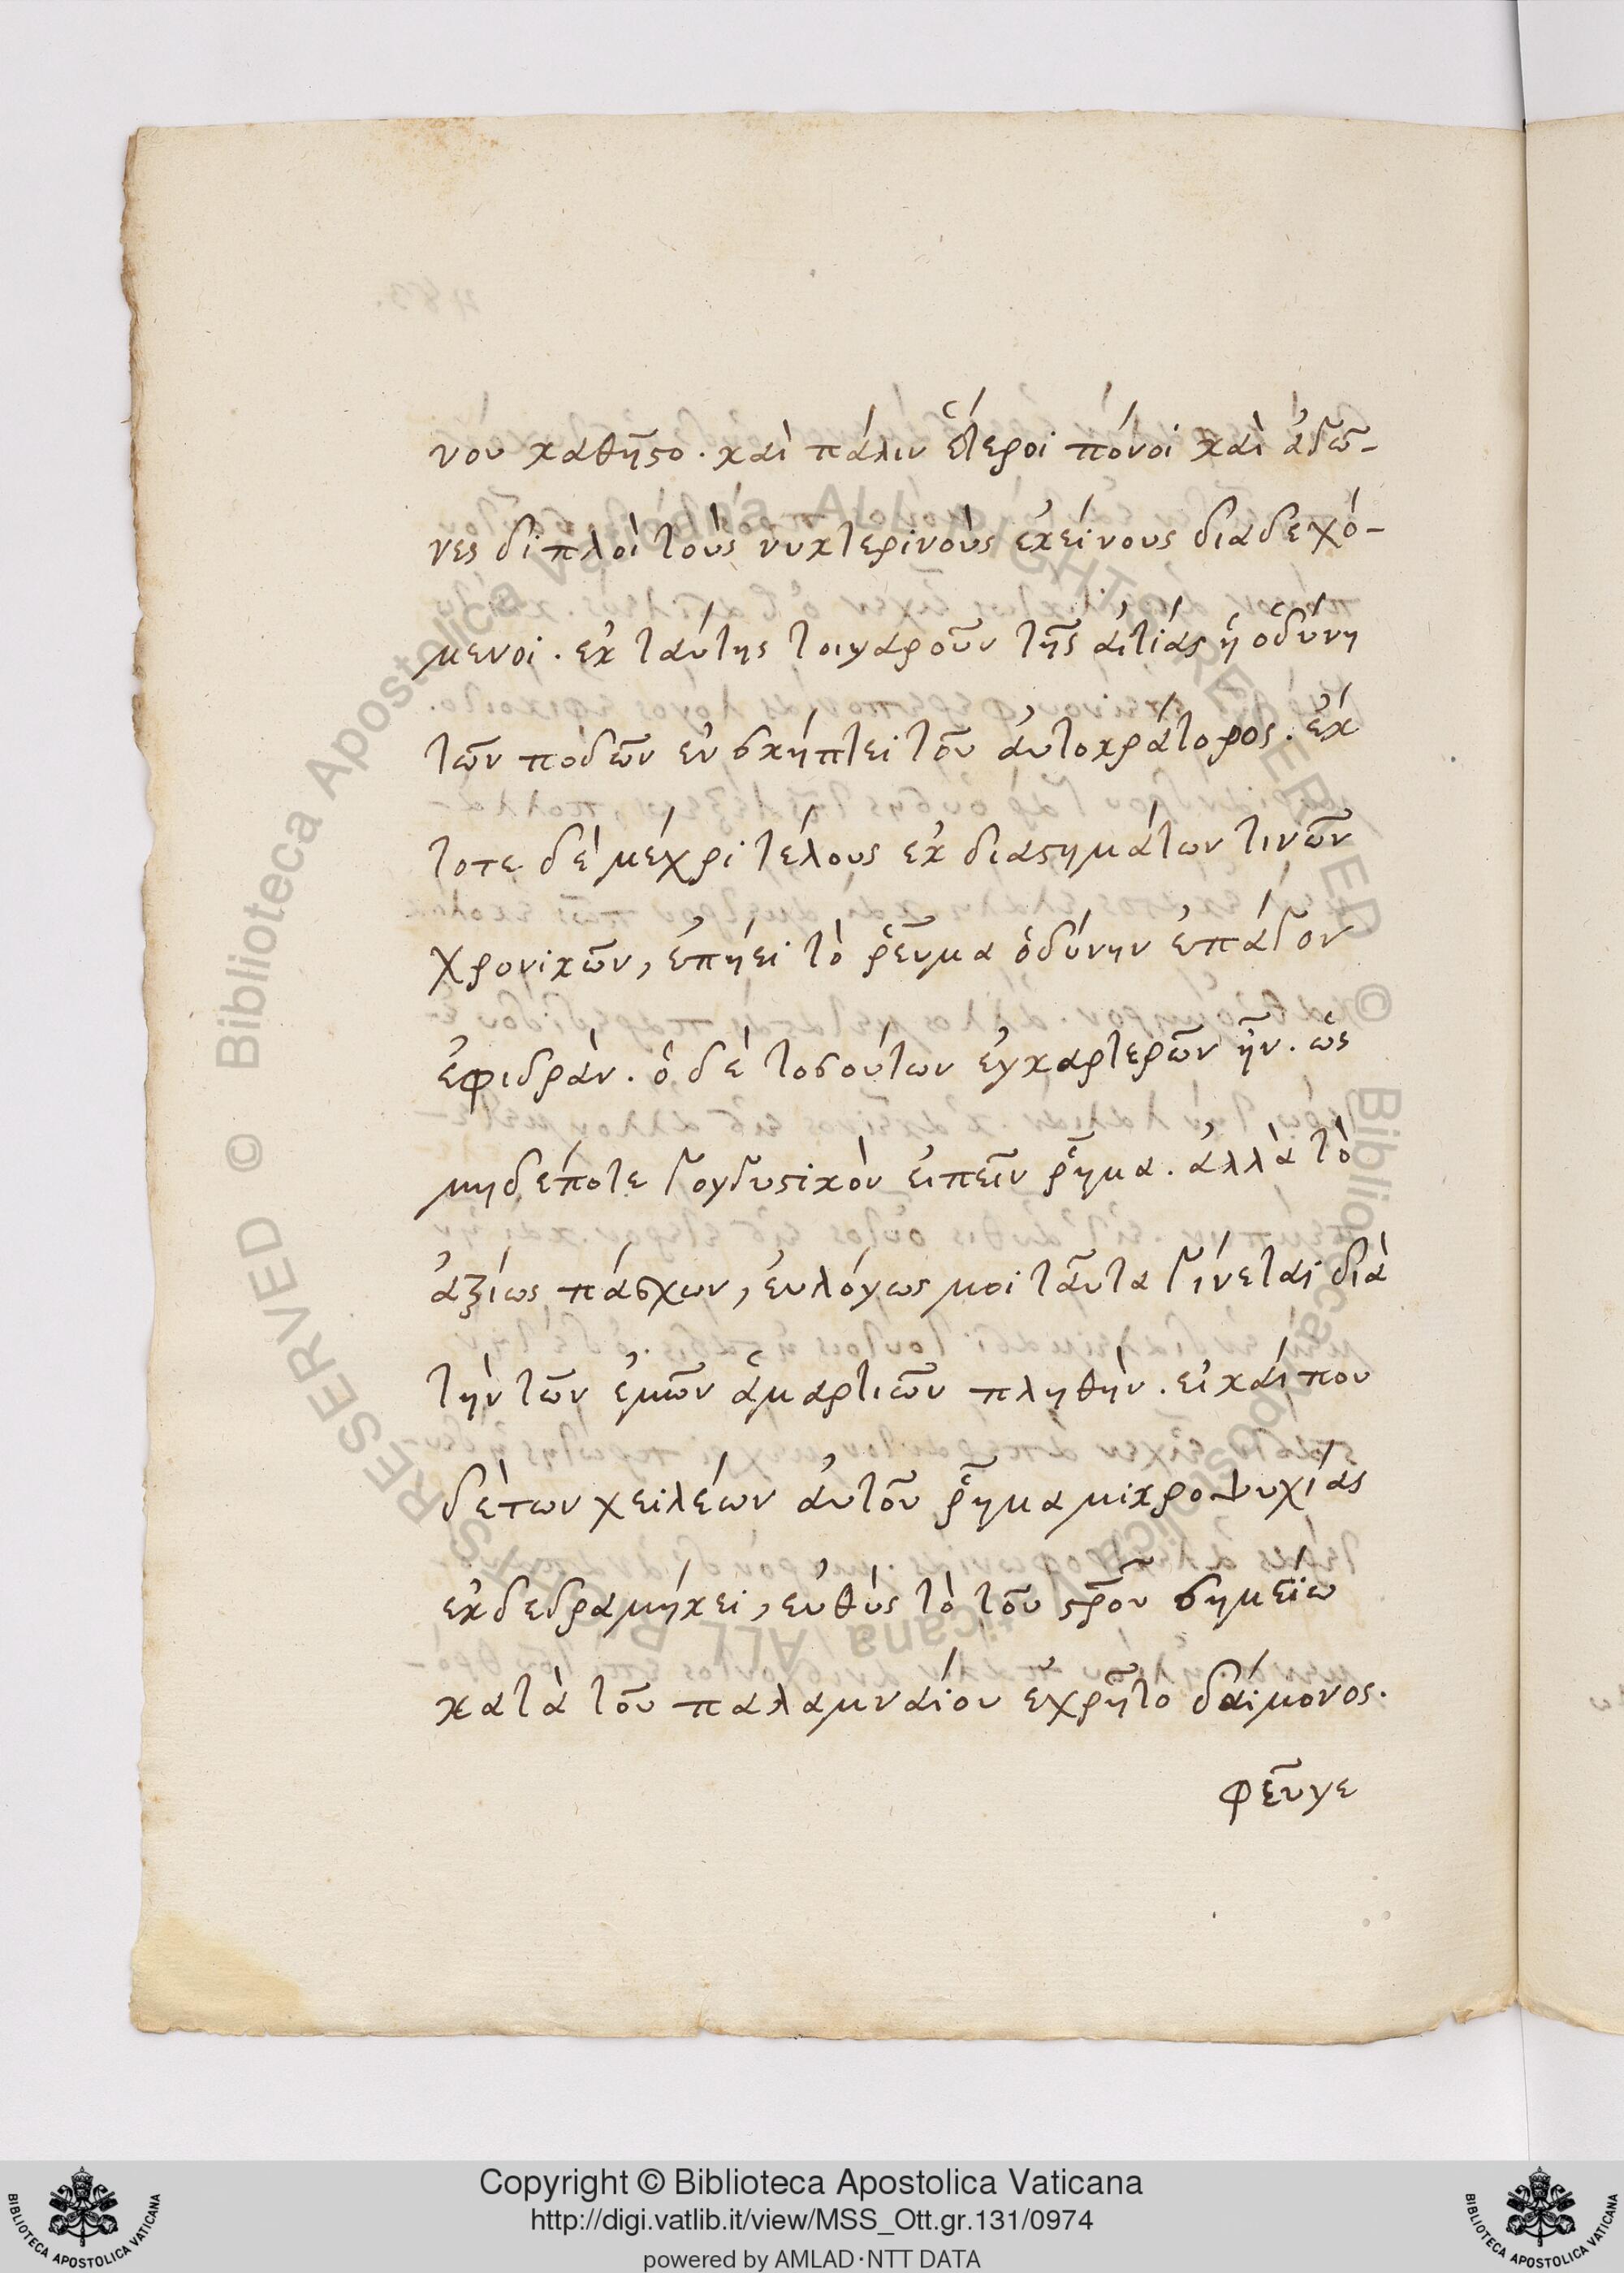 νου καθῆστο. καὶ πάλιν ἕτεροι πόνοι καὶ ἀγῶ-
νες διπλοὶ τοὺς νυκτερινοὺς ἐκείνους διαδεχό-
μενοι. ἐκ ταύτης τοιγαροῦν τῆς αἰτίας ἡ ὀδύνη
τῶν ποδῶν ἐνσκήπτει τοῦ αὐτοκράτορος. ἔκ
τοτε δὲ μέχρι τέλους ἐκ διαστημάτων τινῶν
χρονικῶν, ἐπήει τὸ ῥεῦμα ὀδύνην ἐπάγον
ἐφιδρὰν. ὁ δὲ τοσούτων ἐγκαρτερῶν ἦν. ὡς
μηδέποτε γογγυστικὸν εἰπεῖν ῥῆμα. ἀλλὰ τὸ
ἀξίως πάσχων, εὐλόγως μοι ταῦτα γίνεται διὰ
τὴν τῶν ἐμῶν ἁμαρτιῶν πληθὴν. εἰ καί που
δὲ των χειλέων αὐτοῦ ῥῆμα μικροψυχίας
ἐκδεδραμήκει, εὐθὺς τὸ τοῦ στροῦ σημείω
κατὰ τοῦ παλαμναίου ἐχρῆτο δαίμονος.
φεῦγε
Copyright © Biblioteca Apostolica Vaticana
http://digi.vatlib.it/view/MSS_Ott.gr.131/0974
powered by AMLAD·NTT DATA
BIBLIOTECA APOSTOLICA VATICANA
BIBLIOTECA APOSTOLICA VATICANA